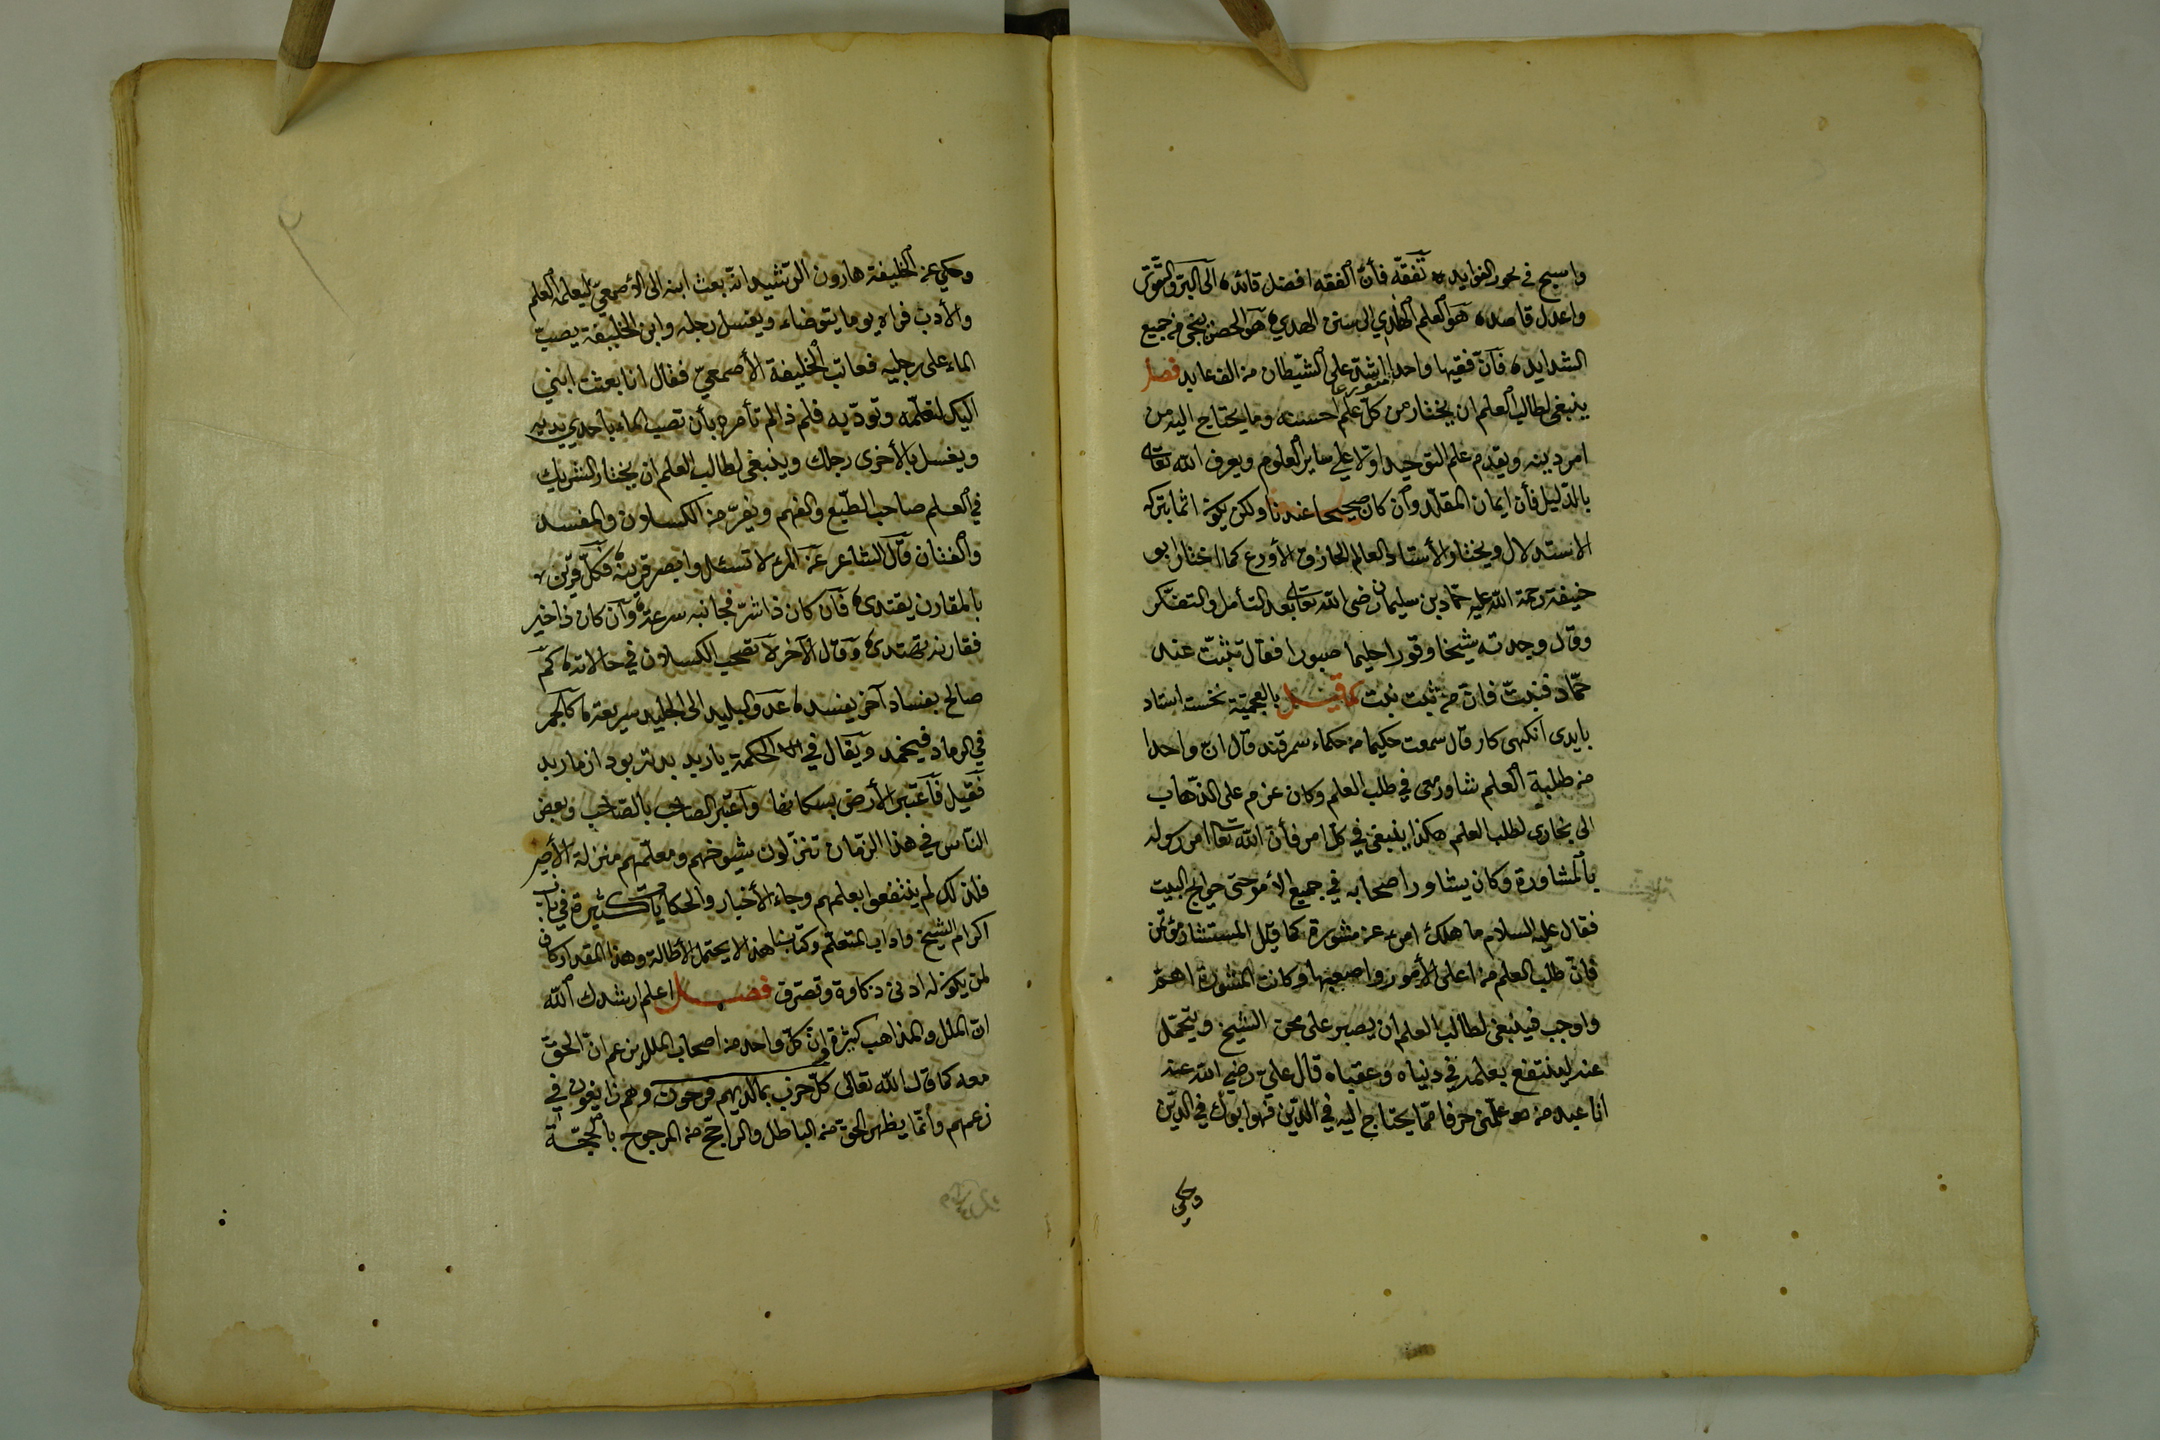 واسبح في بحور الفوايد تفقه فأن الفقه افضل قائد الى البر والتقوى
واعدل قاصد هو العلم الهادي الى سنن الهدى هو الحصن ينجي من جميع
الشدايد فأن فقيها واحدا متورعا اشد على الشيطان من الف عابد فصل
ينبغي لطالب العلم ان يختار من كل علم احسنه وما يحتاج اليه من
امر دينه ويقدم علم التوحيد اولا على ساير العلوم ويعرف الله تعالى
بالدليل فأن ايمان المقلد وأن كان صحيحا عندنا ولكن يكون اثما بتركه
الاستدلال ويختار الأستاد العالم الحاذق الأورع كما اختار ابو
حنيفة رحمة الله عليه حماد بن سليمان رضى الله تعالى بعد التأمل والتفكر
وقال وجدته شيخا وقورا حليما صبورا فقال تثبت عند
حماد فنبت فان من ثبت نبت كما قيل بالعجمية نخست استاد
بايدى انكهى كار قال سمعت حكيما من حكماء سمرقند قال ان واحدا
من طلبة العلم شاور معى في طلب العلم وكان عزم على الذهاب
الى بخارى لطلب العلم هكذا ينبغي في كل امر فأن الله تعالى امر رسوله
بالمشاورة وكان يشاور اصحابه في جميع الأمور حتى حوايج البيت
فقال عليه السلام ما هلك امرء عن مشورة كما قيل المستشار مؤتمن
فأن طلب العلم من اعلى الأمور واصعبها وكانت المشورة اهم
واوجب فينبغي لطالب العلم ان يصبر على محن الشيخ ويتحمل
عنه لينتفع بعلمه في دنياه وعقباه قال علي رضي الله عنه
انا عبد من علمني حرفا مما يحتاج اليه في الدين فهو ابوك في الدين
وحكي
وحكي عن الخليفة هارون الرشيد انه بعث ابنه الى الأصمعي ليعلمه العلم
والأدب فراه يوما يتوضاء ويغسل رجله وابن الخليفة يصب
الماء على رجليه فعاتب الخليفة الأصمعي فقال انا بعثت ابني
اليك لتعلمه وتؤدبه فلم ذا لم تأمره بأن تصب الماء باحدي يديه
ويغسل بالأخرى رجلك وينبغي لطالب العلم ان يختار الشريك
في العلم صاحب الطبع والفهم ويفر من الكسلان والمفسد
والفتان قال الشاعر عن المرء لا تسئل وابصر قرينه فكل قرين
بالمقارن يقتدى فأن كان ذا شر فجانبه سرعة وأن كان ذا خير
فقارنه تهتدى وقال الآخر لا تصحب الكسلان في حالاته كم
صالح بفساد آخر يفسد عدو البليد الى الجليد سريعة كالجمر
في الرماد فيخمد ويقال في الحكمة يار بد بدتر بود از مار بد
فقيل فأعتبر الأرض بسكانها وأعتبر الصاحب بالصاحب وبعض
الناس في هذا الزمان تنزلون شيوخهم ومعلمهم منزلة الأجير
فلذلك لم ينتفعوا بعلمهم وجاء الأخبار والحكايات كثيرة في باب
اكرام الشيخ واداب المتعلم وكتابنا هذا لا يحتمل الأطالة وهذا المقدار كاف
لمن يكون له ادنى ذكاوة وتصرف فصل اعلم ارشدك الله
ان الملل والمذاهب كثيرة وان كل واحد من اصحاب الملل يزعم ان الحق
معه كما قال الله تعالى كل حزب بما لديهم فرحون وهم زايغون في
زعمهم وأنما يظهر الحق من الباطل والراجح من المرجوح بالحجة